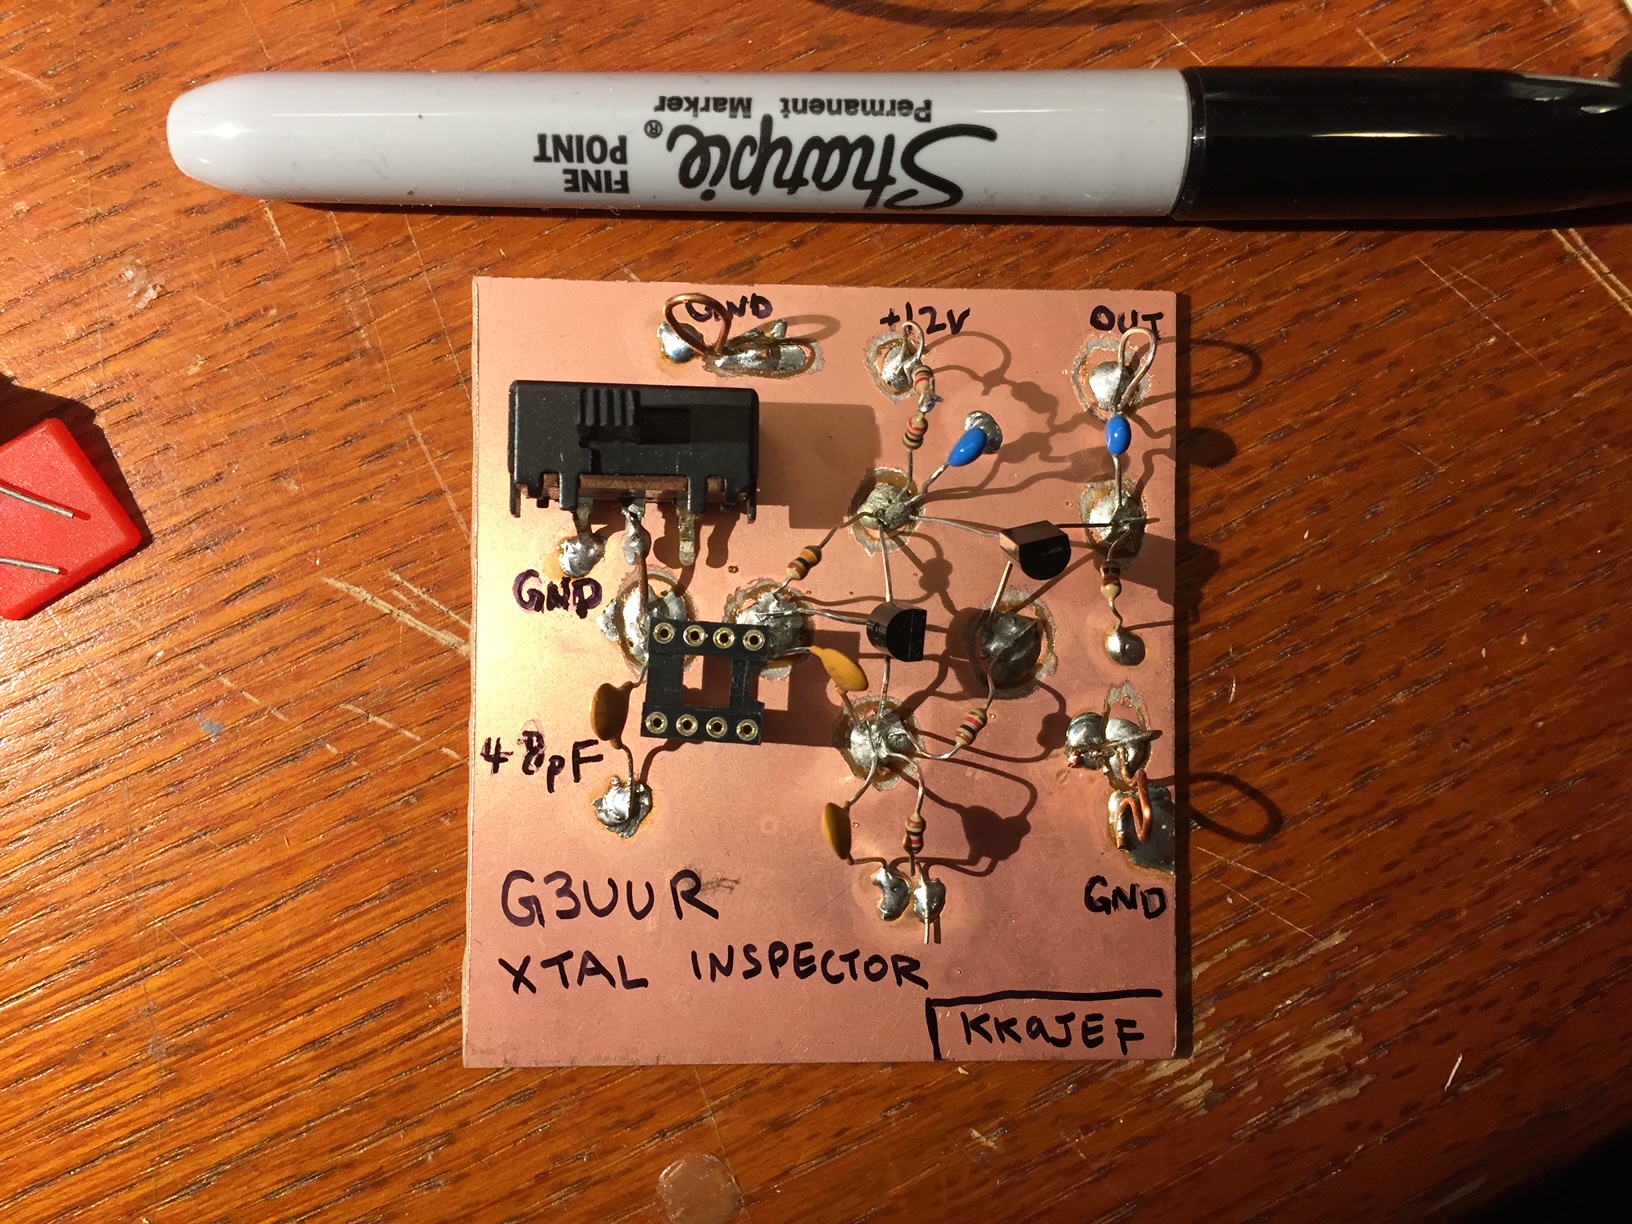 Sharpie®
Permanent Marker
FINE
POINT
GND
+12V
OUT
GND
48pF
G3UUR
XTAL INSPECTOR
GND
KK9JEF